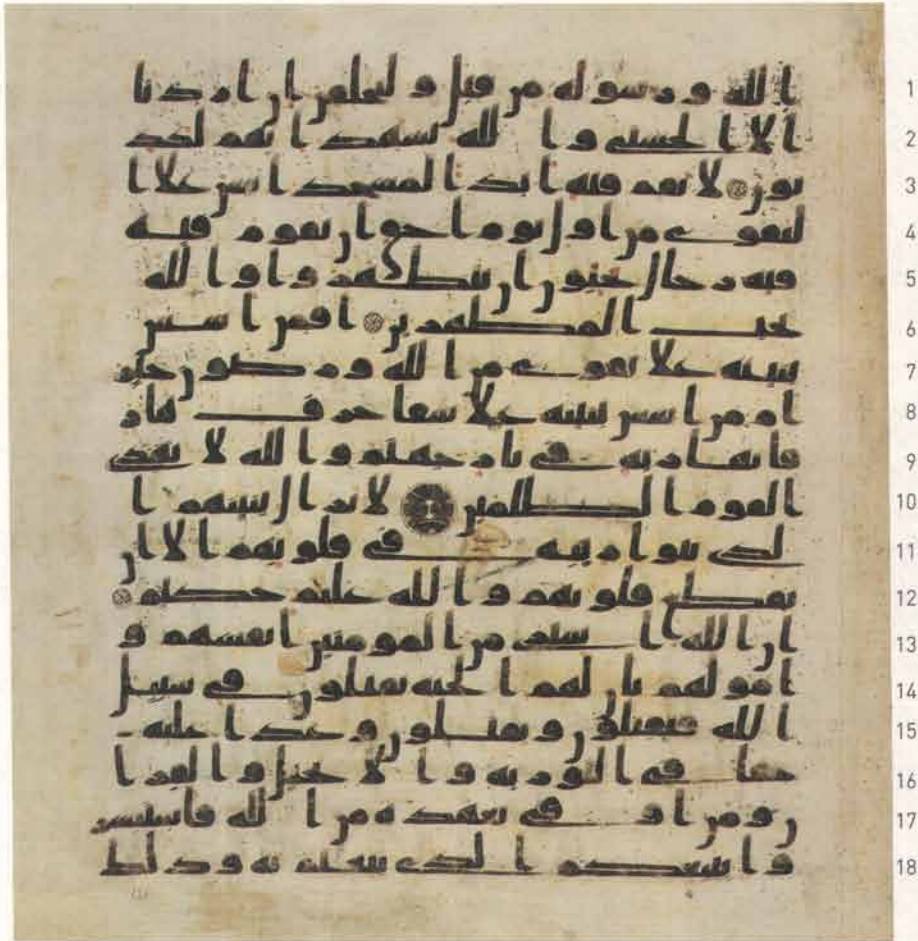 الله ورسوله من قبل وليحلفن ان اردنا 1
الا الحسنى والله يشهد انهم لكذ 2
بون لا تقم فيه ابدا لمسجد اسس علا ا 3
لتقوى من اول يوم احق ان تقوم فيه 4
فيه رجال يحبون ان يتطهروا والله 5
يحب المطهرين افمن اسس 6
بنينه علا تقوى من الله ورضون خير 7
ام من اسس بنينه علا شفا جرف هار 8
فانهار به في نار جهنم والله لا يهدى 9
القوم الظلمين لا يزال بنينهم ا 10
لذى بنوا ريبة في قلوبهم الا ان 11
تقطع قلوبهم والله عليم حكيم 12
ان الله اشترى من المومنين انفسهم و 13
امولهم بان لهم الجنة يقتلون في سبيل 14
الله فيقتلون ويقتلون وعدا عليه 15
حقا في التورية والانجيل والقرا 16
ن ومن اوفى بعهده من الله فاستبشر 17
وا ببيعكم الذى بيعتم به وذلك 18